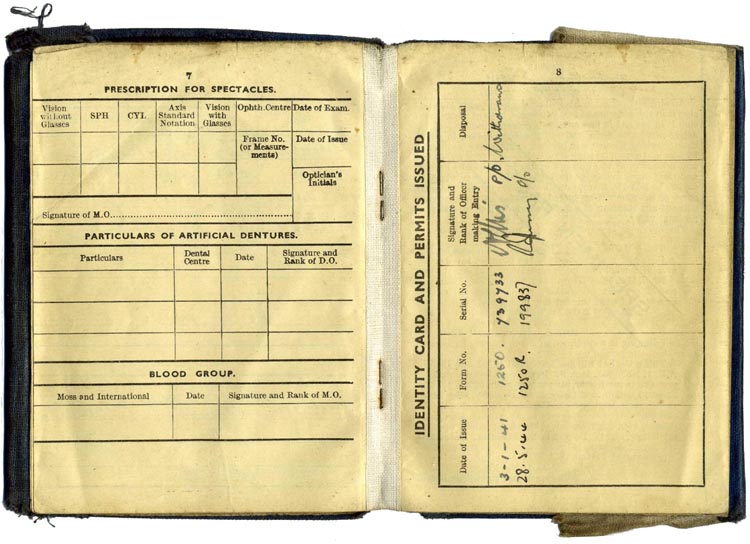 7
PRESCRIPTION FOR SPECTACLES.
Vision without Glasses SPH CYL Axis Standard Notation Vision with Glasses Ophth.Centre Date of Exam.
Frame No. (or Measurements) Date of Issue
Optician's Initials
Signature of M.O.
PARTICULARS OF ARTIFICIAL DENTURES.
Particulars Dental Centre Date Signature and Rank of D.O.
BLOOD GROUP.
Moss and International Date Signature and Rank of M.O.
8
IDENTITY CARD AND PERMITS ISSUED
Date of Issue Form No. Serial No. Signature and Rank of Officer making Entry Disposal
3-1-41 1250. 739733 P/O. Withdrawn
28.5.44 1250R. 199837 F/O